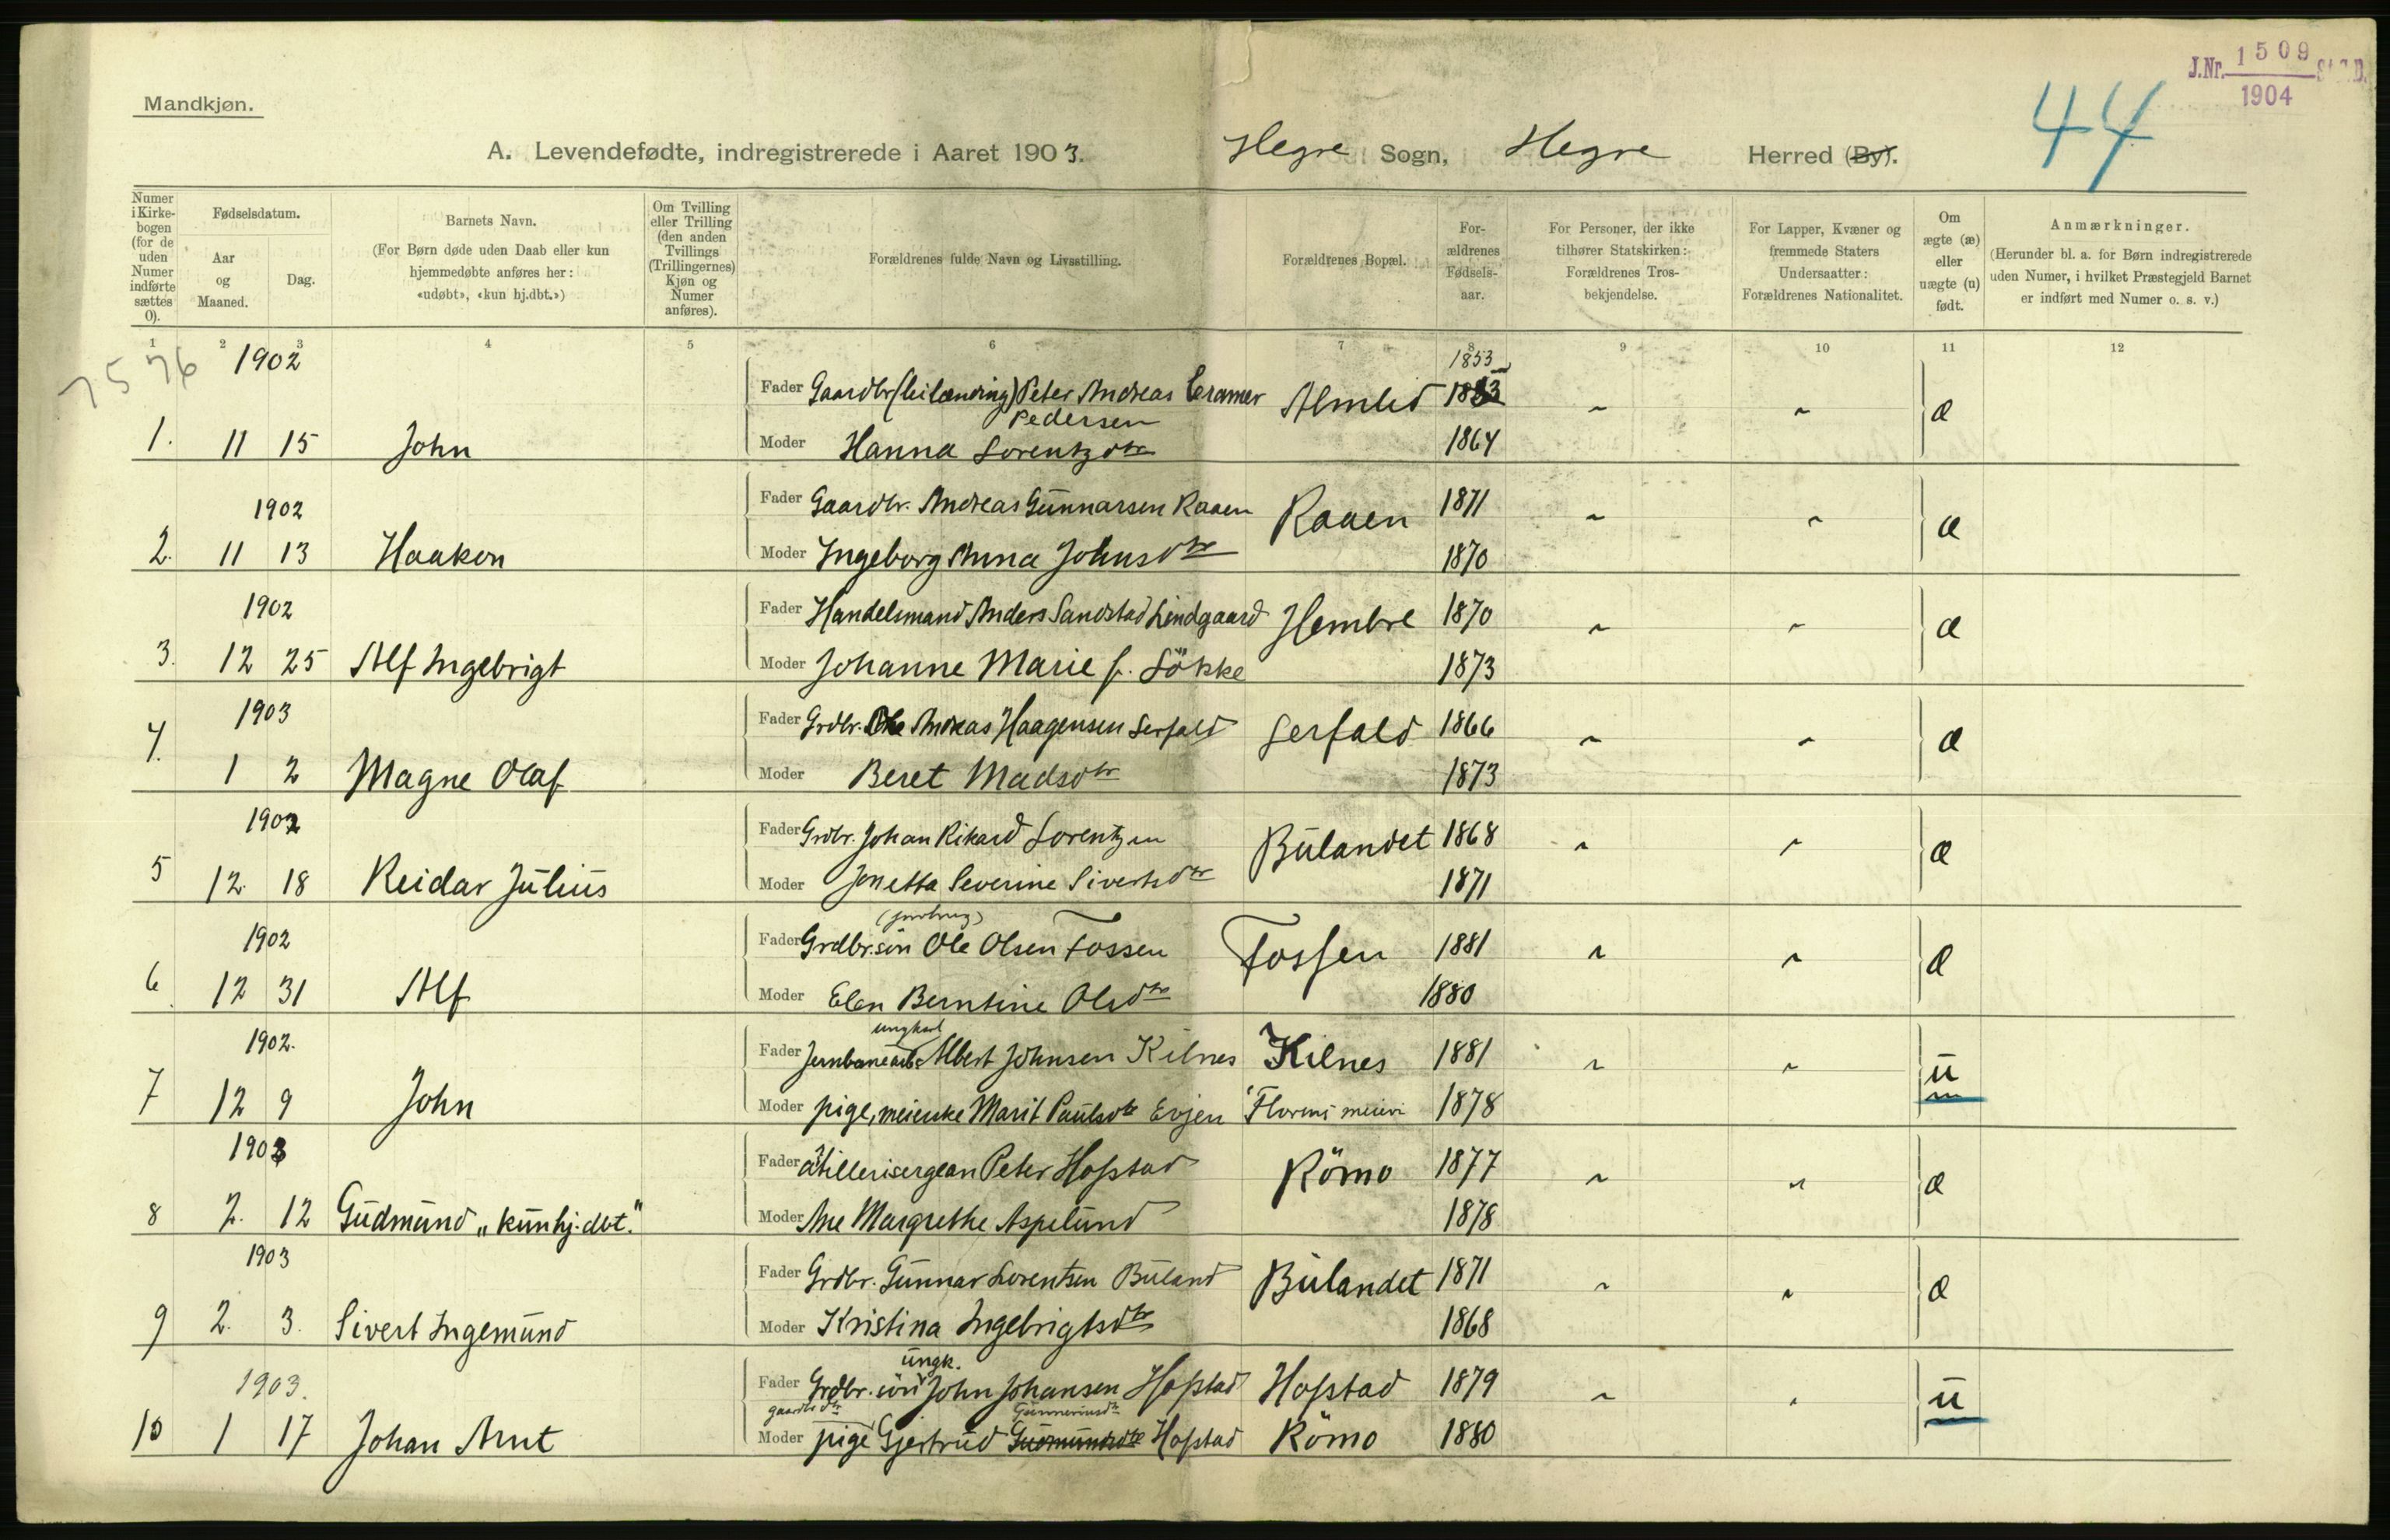 J.Nr. 1509 St.D.
1904
44
Mandkjøn.
A. Levendefødte, indregistrerede i Aaret 1903. Hegre Sogn, Hegre Herred (By).
Numer i Kirkebogen (for de uden Numer indførte sættes 0).
Fødselsdatum.
Aar og Maaned.
Dag.
Barnets Navn.
(For Børn døde uden Daab eller kun hjemmedøbte anføres her: «udøbt», «kun hj.dbt.»)
Om Tvilling eller Trilling (den anden Tvillings (Trillingernes) Kjøn og Numer anføres).
Forældrenes fulde Navn og Livsstilling.
Forældrenes Bopæl.
Forældrenes Fødselsaar.
For Personer, der ikke tilhører Statskirken: Forældrenes Trosbekjendelse.
For Lapper, Kvæner og fremmede Staters Undersaatter: Forældrenes Nationalitet.
Om ægte (æ) eller uægte (u) født.
Anmærkninger.
(Herunder bl. a. for Børn indregistrerede uden Numer, i hvilket Præstegjeld Barnet er indført med Numer o. s. v.)
1 2 3 4 5 6 7 8 9 10 11 12
7576
1902 1853
Fader Gaardbr (leilænding) Peter Andreas Cramer Pedersen Almlid 1883 æ
1. 11 15 John Moder Hanna Lorentzdtr 1864
1902 Fader Gaardbr. Andreas Gunnarsen Raaen Raaen 1871 æ
2. 11 13 Haakon Moder Ingeborg Anna Johnsdtr 1870
1902 Fader Handelsmand Anders Sandstad Lindgaard Hembre 1870 æ
3. 12 25 Alf Ingebrigt Moder Johanne Marie f. Løkke 1873
1903 Fader Grdbr. Ole Andreas Haagensen Gerfald Gerfald 1866 æ
4. 1 2 Magne Olaf Moder Beret Madsdtr 1873
1902 Fader Grdbr. Johan Rikard Lorentzen Bulandet 1868 æ
5 12. 18 Reidar Julius Moder Jonetta Severine Sivertsdtr 1871
(jordbrug)
1902 Fader Grdbr.søn Ole Olsen Fossen Fossen 1881 æ
6. 12 31 Alf Moder Elen Berntine Olsdtr 1880
ungkarl
1902. Fader Jernbanearb. Albert Johnsen Kilnes Kilnes 1881 u
7 12 9 John Moder pige, meierske Marit Paulsdtr Evjen Florens meieri 1878
1903 Fader artillerisergean Peter Hofstad Römo 1877 æ
8 2. 12 Gudmund „kun hj. dbt." Moder Ane Margrethe Aspelund 1878
1903 Fader Grdbr. Gunnar Lorentsen Buland Bulandet 1871 æ
9 2. 3. Sivert Ingemund Moder Kristina Ingebrigtsdtr 1868
ungk.
1903. Fader Grdbr. søn John Johansen Hofstad Hofstad 1879 u
gaardbr dtr Gunneriusdtr
10 1 17 Johan Arnt Moder pige Gjertrud Gudmundsdtr Hofstad Römo 1880